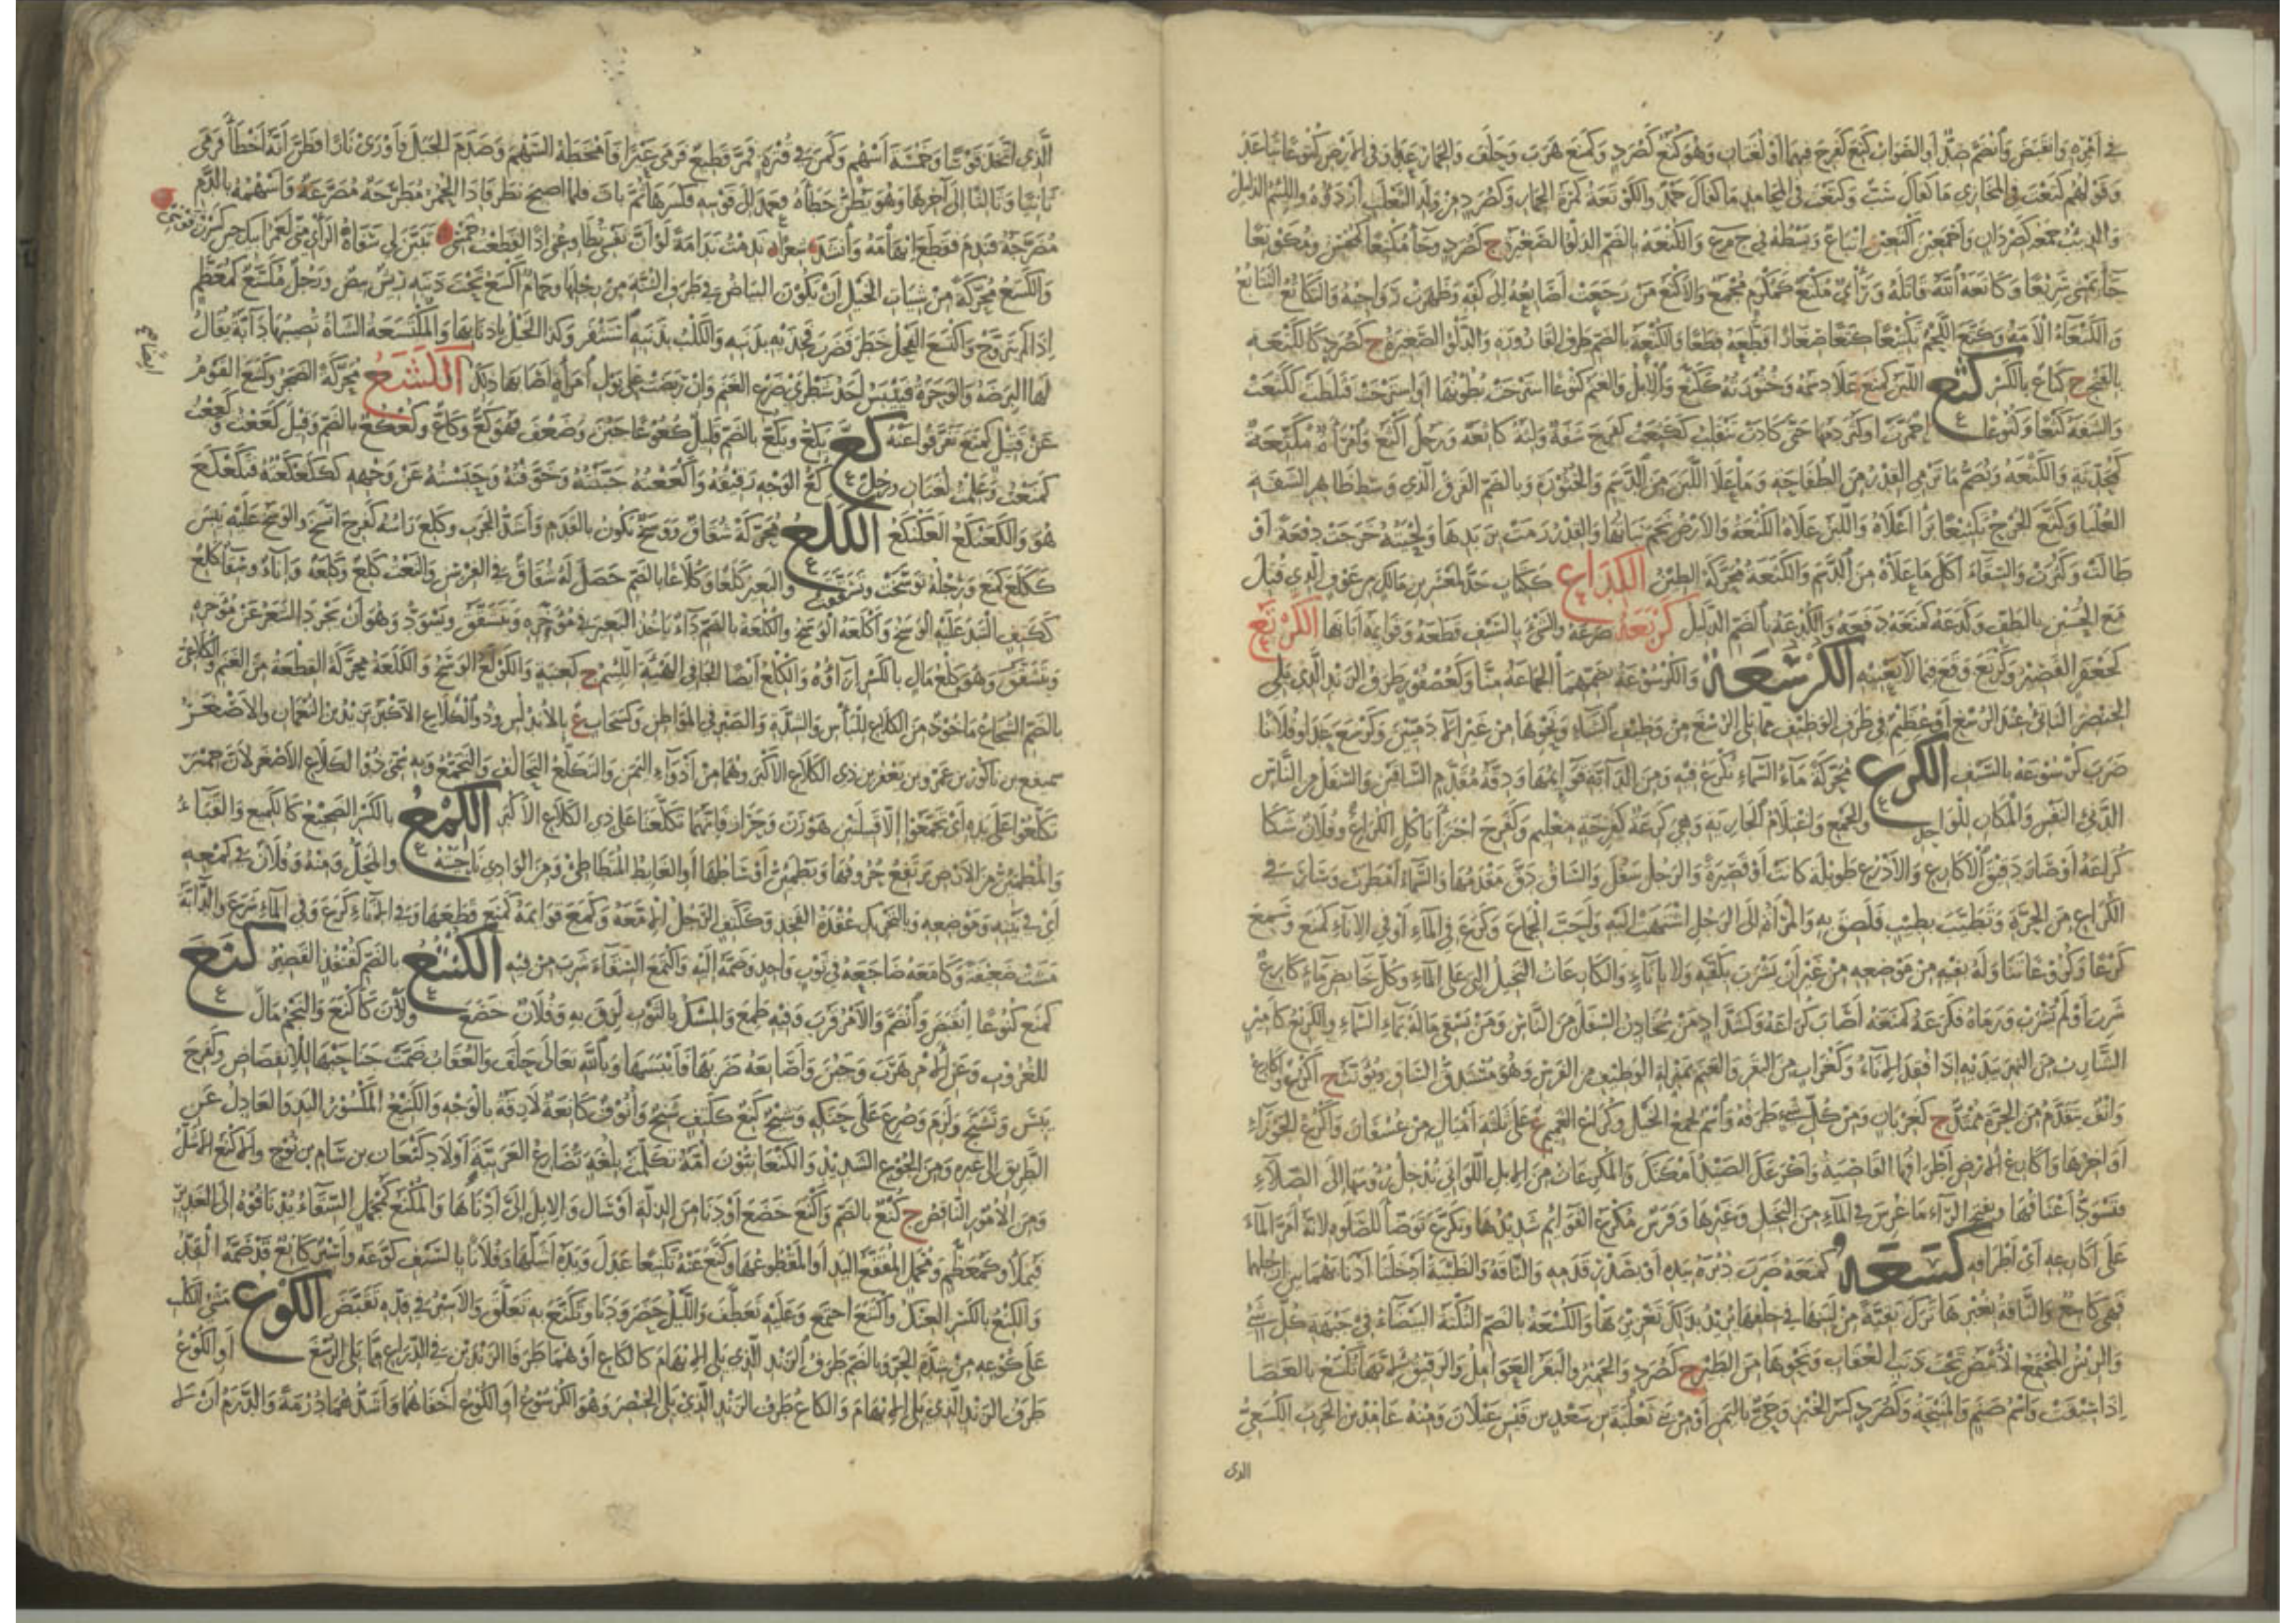 في أمره وانقبض وانضم ضد أو الصواب كنع كفرح فيهما أو لغيان وهو كتع كصرد وكمنع هرب وحلف والحمار عدا وفي الأرض كتوعا تباعد
وقولهم كتعت في المخازي ما كفاك سب وكتعت في المحامد ما كفاك حمد والكوتعة كمرة الحمار وكصرد من ولد الثعلب أردؤه واللئيم الذليل
والذئب ج كصردان وأجمعين أكتعين إتباع وبسطه في ج م ع والكتعة بالضم الدلو الصغيرة ج كصرد وجاء مكتعا كمحسن ومكوتعا
جاء يمشي سريعا وكاتعه الله قاتله ورأي مكتع كمكرم مجمع والأكتع من رجعت أصابعه إلى كفه وظهرت رواجبه والتكاتع التتابع
والكتعاء الأمة وكتع اللحم تكتيعا كتعا صغارا قطعه قطعا والكتعة بالضم طرف القارورة والدلو الصغيرة ج كصرد كالكتعة
بالفتح ج كتاع بالكسر كثع اللبن كمنع علا دسمه وخثورته ككثع والإبل والغنم كثوعا استرخت بطونها أو استرخت فثلطت ككثعت
والشفة كثعا وكثوعا احمرت أو كثر دمها حتى كادت تنقلب ككثعت كفرح شفة ولثة كاثعة ورجل أكثع وامرأة مكثعة
كمحدثة والكثعة وتضم ما ترمي القدر من الطفاحة وما علا اللبن من الدسم والخثورة وبالضم الفرق الذي وسط ظاهر الشفة
العليا وكثع الجرح تكثيعا برأ أعلاه واللبن علاه الكثعة والأرض نجم نباتها والقدر رمت بزبدها ولحيته خرجت دفعة أو
طالت وكثرت والسقاء أكل ما علاه من الدسم والكثعة محركة الطين الكداع ككتاب جد لمعشر بن مالك بن عوف الذي قتل
مع الحسين بالطف وكدعه كمنعه دفعه والكدعة بالضم الذليل كربعه صرعه والشيء بالسيف قطعه وقوائمه أبانها الكرتع
كجعفر القصير وكرتع وقع فيما لا يعنيه الكرسعة والكرسوعة بضمهما الجماعة منا وكعصفور طرف الزند الذي يلي
الخنصر الناتئ عند الرسغ أو عظيم في طرف الوظيف مما يلي الرسغ من وظيف الشاء ونحوها من غير الآدميين وكرسع عدا وفلانا
ضرب كرسوعه بالسيف الكرع محركة ماء السماء يكرع فيه ومن الدابة قوائمها ودقة مقدم الساقين والسفل من الناس
الدنيء النفس والمكان للواحد والجمع واغتلام الجارية وهي كرعة كفرحة مغليم وكفرح اجتزأ بأكل الكراع وفلان شكا
كراعه أو صار دقيق الأكارع والأذرع طويلة كانت أو قصيرة والرجل سفل والساق دق مقدمها والسماء أمطرت وسار في
الكراع من الحرة وتطيب بطيب فلصق به والمرأة إلى الرجل اشتهت إليه وأحبت الجماع وكرع في الماء أو في الإناء كمنع وسمع
كرعا وكروعا تناوله بفيه من موضعه من غير أن يشرب بكفيه ولا بإناء والكارعات النخيل التي على الماء وكل خائض ماء كارع
شرب أو لم يشرب ورماه فكرعه كمنعه أصاب كراعه وكشداد من يخادن السفل من الناس ومن يسقي ماله بماء السماء والكريع كأمير
الشارب من النهر بيديه إذا فقد الإناء وكغراب من البقر والغنم بمنزلة الوظيف من الفرس وهو مستدق الساق ويؤنث ج أكرع وأكارع
وأنف يتقدم من الحرة ممتد ج كغربان ومن كل شيء طرفه واسم لجمع الخيل وكراع الغميم ع على ثلثة أميال من عسفان وأكرع الجوزاء
أواخرها وأكارع الأرض أطرافها القاصية وأكرعك الصيد أمكنك والمكرعات من الإبل اللواتي تدخل رؤسها إلى الصلاء
فتسود أعناقها وبفتح الراء ما غرس في الماء من النخيل وغيرها وفرس مكرع القوائم شديدها وتكرع توضأ للصلوة لأنه أمر الماء
على أكارعه أي أطرافه كسعه كمنعه ضرب دبره بيده أو بصدر قدمه والناقة والظبية أدخلتا أذنابهما بين أرجلهما
فهي كاسع والناقة بغبرها ترك بقية من لبنها في خلفها يريد بذلك تغزيرها والكسعة بالضم النكتة البيضاء في جبهة كل شيء
والريش المجتمع الأبيض تحت ذنب العقاب ونحوها من الطير ج كصرد والحمير والبقر العوامل والرقيق لأنها تكسع بالعصا
إذا سيقت واسم صنم والمنيحة وكصرد كسر الخبز وحي باليمن أو من بني ثعلبة بن سعد بن قيس عيلان ومنه غامد بن الحرث الكسعي
الذي
الذي اتخذ قوسا وخمسة أسهم وكمن في قترة فمر قطيع فرمى عيرا فأمخطه السهم وصدم الجبل فأورى نارا فظن أنه أخطأ فرمى
ثانيا وثالثا إلى آخرها وهو يظن خطأه فعمد إلى قوسه فكسرها ثم بات فلما أصبح نظر فإذا الحمر مطرحة مصرعة وأسهمه بالدم
مضرجة فندم فقطع إبهامه وأنشد شعرا ندمت ندامة لو أن نفسي تطاوعني إذا لقطعت خمسي تبين لي سفاه الرأي مني لعمر أبيك حين كسرت قوسي
والكسع محركة من شيات الخيل أن يكون البياض في طرف الثنة من رجلها وحمام أكسع تحت ذنبه ريش بيض ورجل مكسع كمعظم
إذا لم يتزوج واكتسع الفحل خطر فضرب فخذيه بذنبه والكلب بذنبه استثفر وكذا الخيل بأذنابها والمكتسعة الشاة تصيبها دابة يقال
أيضا صح
لها البرصة والوحرة فييبس أحد شطري ضرع الغنم وإن ربضت على بول امرأة أصابها ذلك الكشع محركة الضجر وكشع القوم
عن قتيل كمنع تفرقوا عنه كع يكع ويكع بالضم قليل كعوعا جبن وضعف فهو كع وكاع وكعكع بالضم وقيل كععت وكععت
كمنعت وعلمت لغتان ورجل كع الوجه رقيقه وأكععته حبنته وخوفته وحبسته عن وجهه ككعكعته فتكعكع
هو والكعنكع العكنكع الكلع محركة شقاق ووسخ يكون بالقدم وأشد الجرب وكلع رأسه كفرح اتسخ والوسخ عليه يبس
ككلع كمنع ورجله توسخت وتشققت والبعير كلعا وكلاعا بالضم حصل له شقاق في الفرسن والنعت كلع وكلعة وإناء وسقاء كلع
ككتف التبد عليه الوسخ وأكلعه الوسخ والكلعة بالضم داء يأخذ البعير في مؤخره ويتشقق ويسود وهو أن يجرد الشعر عن مؤخره
ويتشقق وهو كلع مال بالكسر إزاؤه والكلع أيضا الجافي الهيئة اللئيم ج كعنبة والكولع الوسخ والكلعة محركة القطعة من الغنم والكلاعي
بالضم الشجاع مأخوذ من الكلاع للبأس والشدة والصبر في المواطن وكسحاب ع بالأندلس وذو الكلاع الأكبر يزيد بن النعمان والأصغر
سميفع بن ناكور بن عمرو بن يعفر بن ذي الكلاع الأكبر وهما من أذواء اليمن والتكلع التحالف والتجمع وبه سمي ذوا الكلاع الأصغر لأن حمير
تكلعوا على يده أي تجمعوا إلا قبيلتين هوزن وحراز فإنهما تكلعتا على ذي الكلاع الأكبر الكمع بالكسر الضجيع كالكميع والقباء
والمطمئن من الأرض ترتفع حروفها وتطمئن أوساطها أو الغائط المتطأطئ ومن الوادي ناحيته والمحل ومنه وفلان في كمعه
أي في بيته وموضعه وبالتحريك عقدة الفخذ وككتف الرجل الإمعة وكمع قوائمه كمنع قطعها وفي الإناء كرع وفي الماء شرع والدابة
مشت ضعيفة وكامعه ضاجعه في ثوب واحد وضمه إليه واكتمع السقاء شرب من فيه الكنتع بالضم كقنفذ القصير كنع
كمنع كنوعا انقبض وانضم والأمر قرب وفيه طمع والمسك بالثوب لزق به وفلان خضع ولان كأكنع والنجم مال
للغروب وعن الأمر هرب وجبن وأصابعه ضربها فأيبسها وبالله تعالى حلف والعقاب ضمت جناحيها للانقضاض وكفرح
يبس وتشنج ولزم وصرع على حنكه وشيخ كنع ككتف شنج وأنوف كانعة لازقة بالوجه والكنيع المكسور اليد والعادل عن
الطريق إلى غيره ومن الجوع الشديد والكنعانيون أمة تكلمت بلغة تضارع العربية أولاد كنعان بن سام بن نوح والأكنع الأشل
ومن الأمور الناقص ج كنع بالضم وأكنع خضع أو دنا من الذلة أو سأل والإبل إلي أدناها والمكنع كمجمل السقاء يدنى فوه إلى الغدير
فيملأ وكمعظم ومجمل المقفع اليد أو المقطوعها وكنع عنه تكنيعا عدل ويده أشلها وفلانا بالسيف كوعه وأسير كانع قد ضمه القد
والكنع بالكسر العنك واكتنع اجتمع وعليه تعطف والليل حضر ودنا وتكنع به تعلق والأسير في قده تقبض الكوع مشي الكلب
على كوعه من شدة الحر وبالضم طرف الزند الذي يلي الإبهام كالكاع أو هما طرفا الزندين في الذراع مما يلي الرسغ أو الكوع
طرف الزند الذي يلي الإبهام والكاع طرف الزند الذي يلي الخنصر وهو الكرسوع أو الكوع أخفاهما وأشدهما درمة والدرم أن